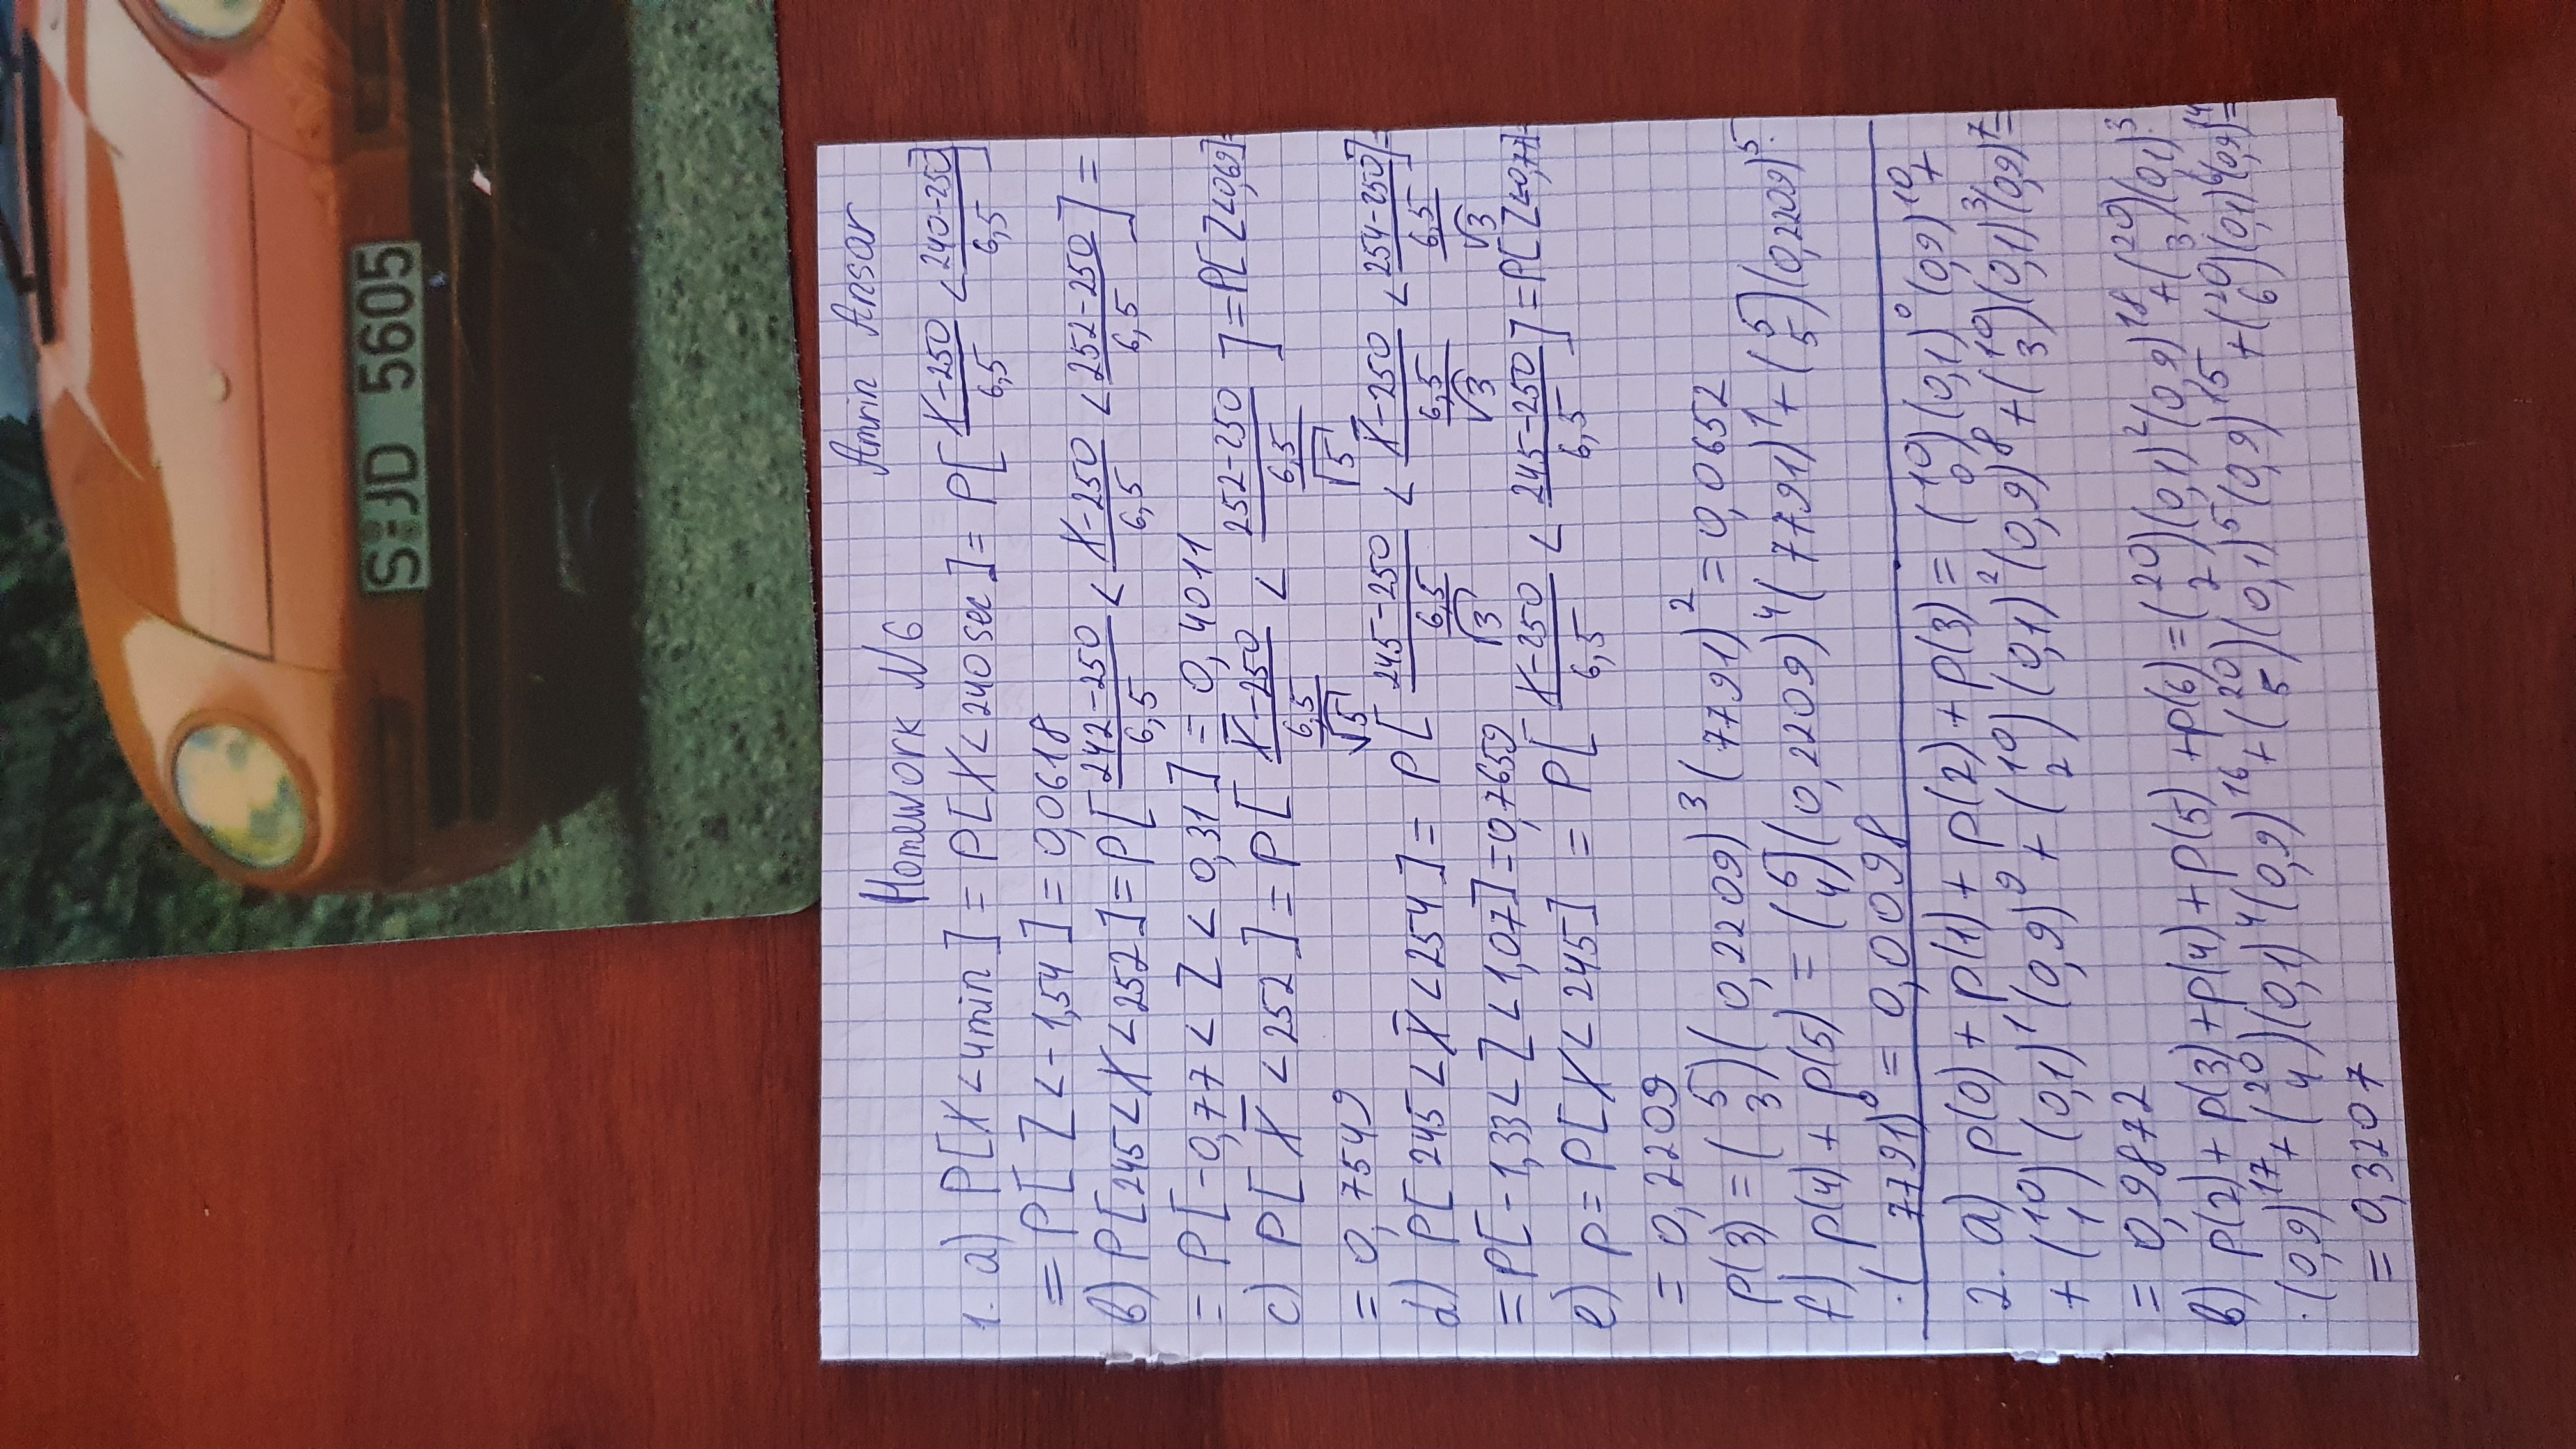 S JD 5605
Amrin Ansar
Homework N6
1. a) P[X < 4 min] = P[X < 240 sec] = P[(X-250)/6,5 < (240-250)/6,5]
= P[Z < -1,54] = 0,0618
b) P[245 < X < 252] = P[(242-250)/6,5 < (X-250)/6,5 < (252-250)/6,5] =
= P[-0,77 < Z < 0,31] = 0,4011
c) P[X̅ < 252] = P[(X̅-250)/(6,5/√5) < (252-250)/(6,5/√5)] = P[Z < 0,69] =
= 0,7549
d) P[245 < X̅ < 254] = P[(245-250)/(6,5/√3) < (X̅-250)/(6,5/√3) < (254-250)/(6,5/√3)] =
= P[-1,33 < Z < 1,07] = 0,7659
e) p = P[X < 245] = P[(X-250)/6,5 < (245-250)/6,5] = P[Z < 0,77] =
= 0,2209
p(3) = (5 3)(0,2209)³(7791)² = 0,0652
f) p(4) + p(5) = (5 4)(0,2209)⁴(7791)¹ + (5 5)(0,2209)⁵ ·
· (7791)⁰ = 0,0098
2. a) p(0) + p(1) + p(2) + p(3) = (10 0)(0,1)⁰(0,9)¹⁰ +
+ (10 1)(0,1)¹(0,9)⁹ + (10 2)(0,1)²(0,9)⁸ + (10 3)(0,1)³(0,9)⁷ =
= 0,9872
b) p(2) + p(3) + p(4) + p(5) + p(6) = (20 2)(0,1)²(0,9)¹⁸ + (20 3)(0,1)³ ·
· (0,9)¹⁷ + (20 4)(0,1)⁴(0,9)¹⁶ + (20 5)(0,1)⁵(0,9)¹⁵ + (20 6)(0,1)⁶(0,9)¹⁴ =
= 0,3207